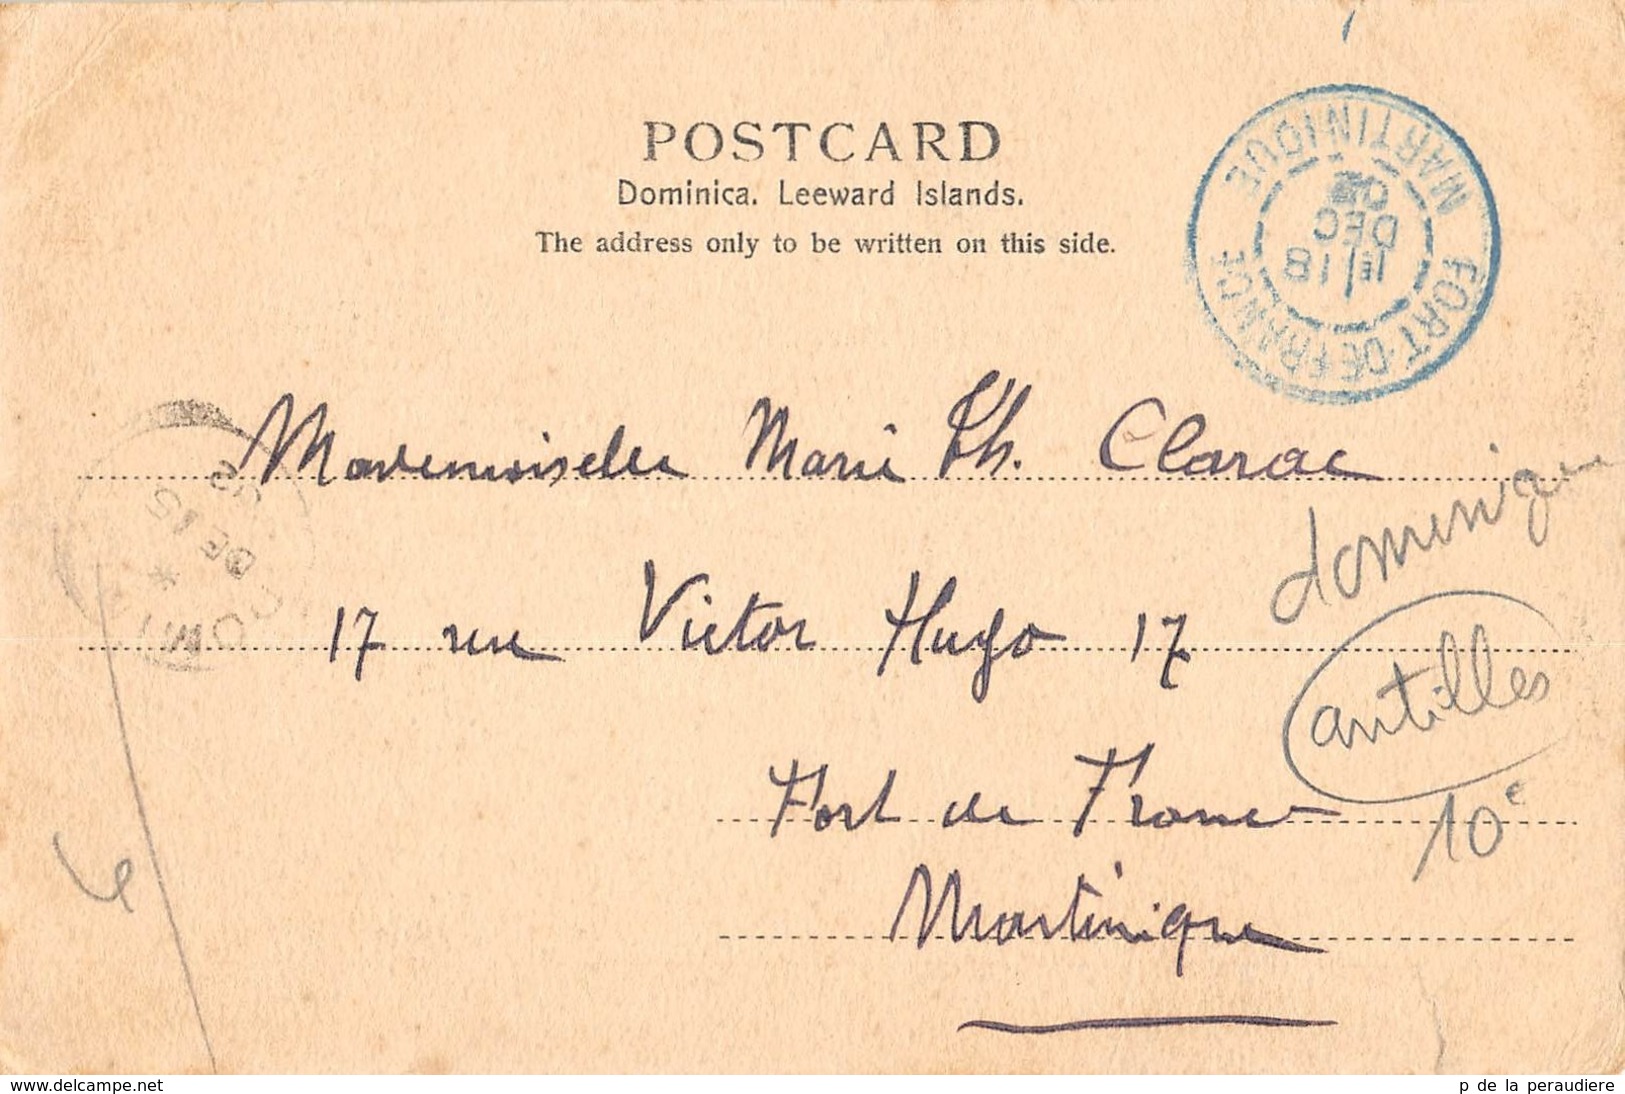 POSTCARD
Dominica. Leeward Islands.
The address only to be written on this side.
MARTINIQUE
18
DEC
FORT-DE-FRANCE
Mademoiselle Marie Th. Clarac
17 rue Victor Hugo 17
Fort de France
Martinique
DOMI
*
DE 15
dominique
antilles
10€
www.delcampe.net
p de la peraudiere